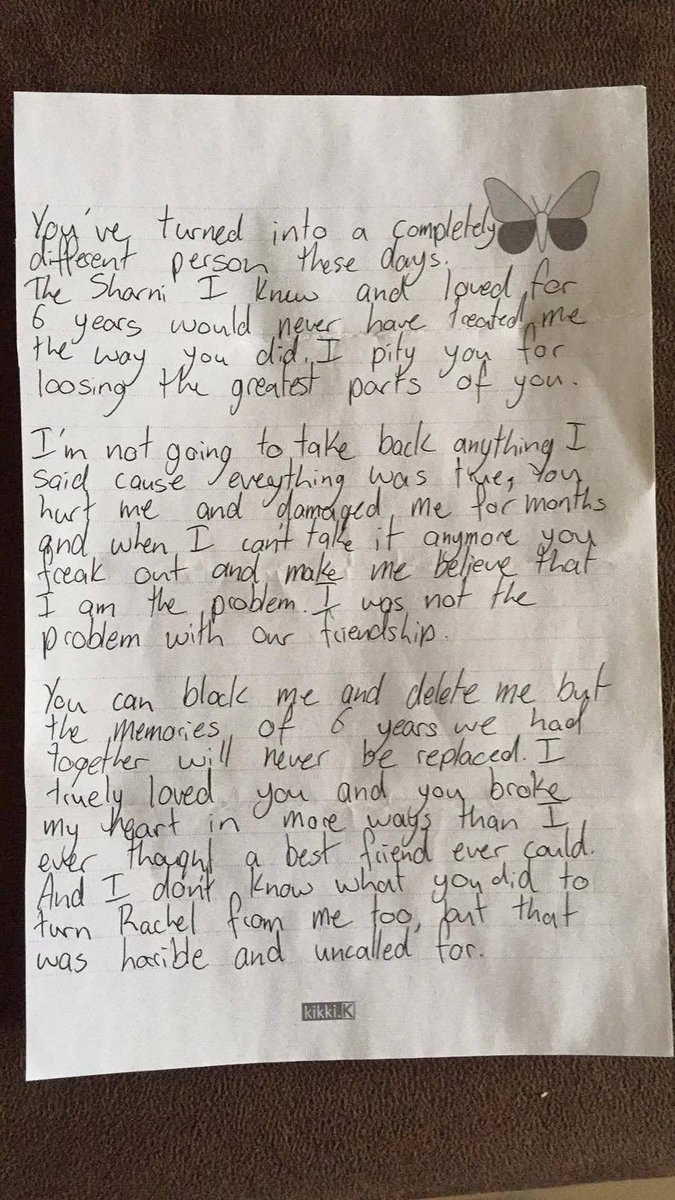 You've turned into a completely
different person these days.
The Sharni I knew and loved for
6 years would never have treated me
the way you did. I pity you for
loosing the greatest parts of you.
I'm not going to take back anything I
said cause eveything was true, You
hurt me and damaged me for months
and when I can't take it anymore you
freak out and make me believe that
I am the problem. I was not the
problem with our friendship.
You can block me and delete me but
the memories of 6 years we had
together will never be replaced. I
truely loved you and you broke
my heart in more ways than I
ever thought a best friend ever could.
And I don't know what you did to
turn Rachel from me too, but that
was horible and uncalled for.
kikki.K